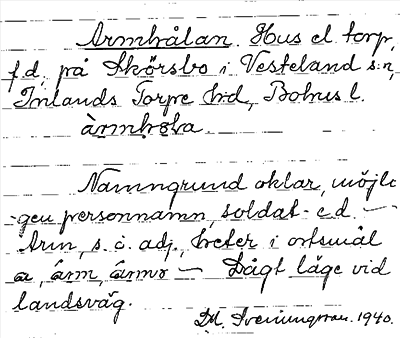 Armhålan. Hus el. torp,
f.d., på Skörsbo i Vesteland s:n,
Inlands Torpe h:d, Bohus l.
àrmhəʟa.
Namngrund oklar, möjli-
gen personnamn, soldat- e.d. —
Arm, s. o. adj., heter i ortsmål
a, àrm, àrmər — Lågt läge vid
landsväg.
D.A. Sveningsson. 1940.